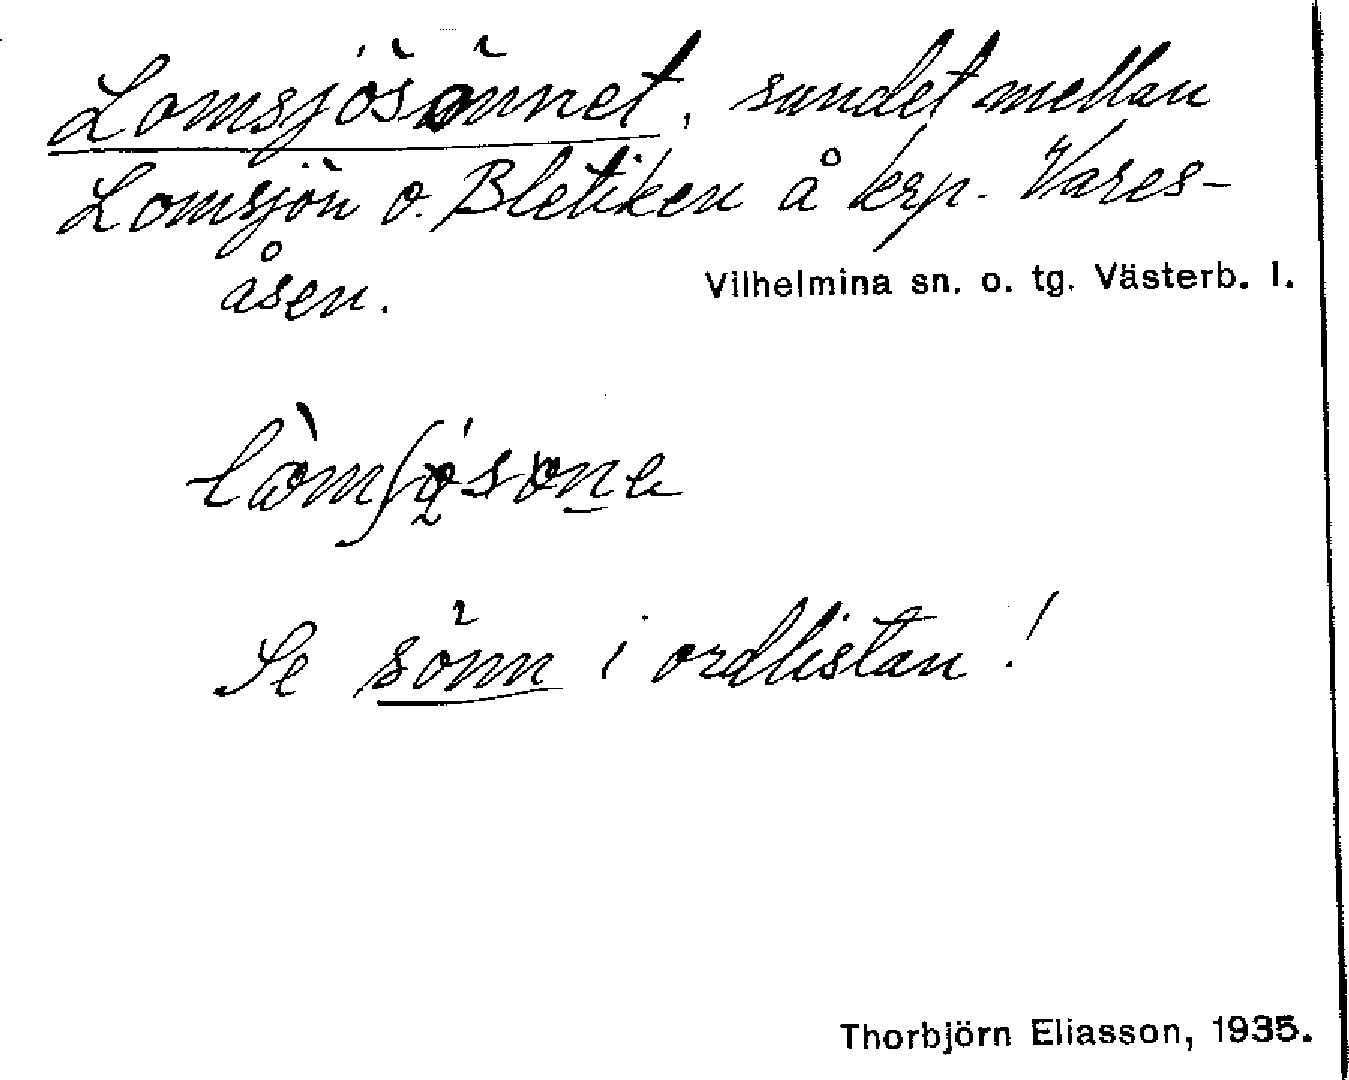 Lomsjösönnet, sundet mellan
Lomsjön o. Bletiken å krp. Vares-
åsen.
Vilhelmina sn. o. tg. Västerb. l.
Se sönn i ordlistan!
Thorbjörn Eliasson, 1935.